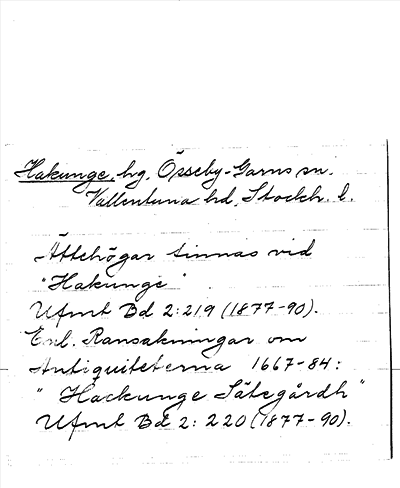 Hakunge, hg. Össeby-Garns sn.
Vallentuna hd, Stockh. l.
Ättehögar finnas vid
"Hakunge".
Ufmt Bd 2:219 (1877-90).
Enl. Ransakningar om
Antiquiteterna 1667-84:
"Hackunge Sätegårdh"
Ufmt Bd 2: 220 (1877-90).